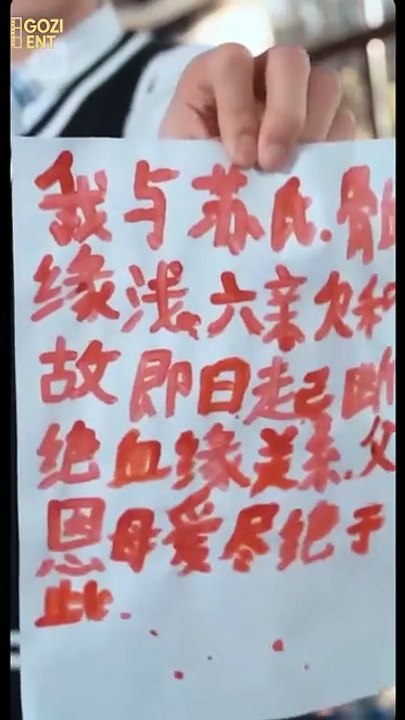 GOZI
ENT
我与苏氏.骨血
缘浅.六亲欠和
故即日起断
绝血缘关系.父
恩母爱尽绝于
此.